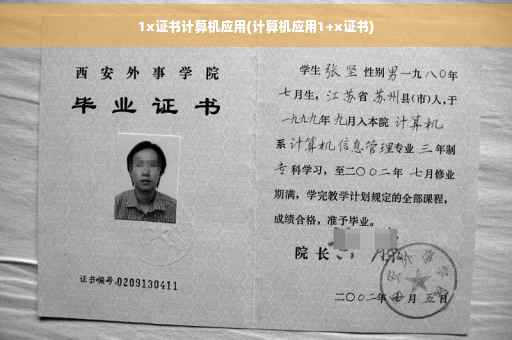 1x证书计算机应用(计算机应用1+x证书)
西安外事学院
毕业证书
证书编号:0209130411
学生 张坚 性别 男 一九八〇年
七月生,江苏省 苏州县(市)人,于
一九九九年 九月入本院 计算机
系 计算机信息管理专业 三 年制
专 科学习,至二〇〇二年 七月修业
期满,学完教学计划规定的全部课程,
成绩合格,准予毕业。
院长
二〇〇二年 七 月 五 日